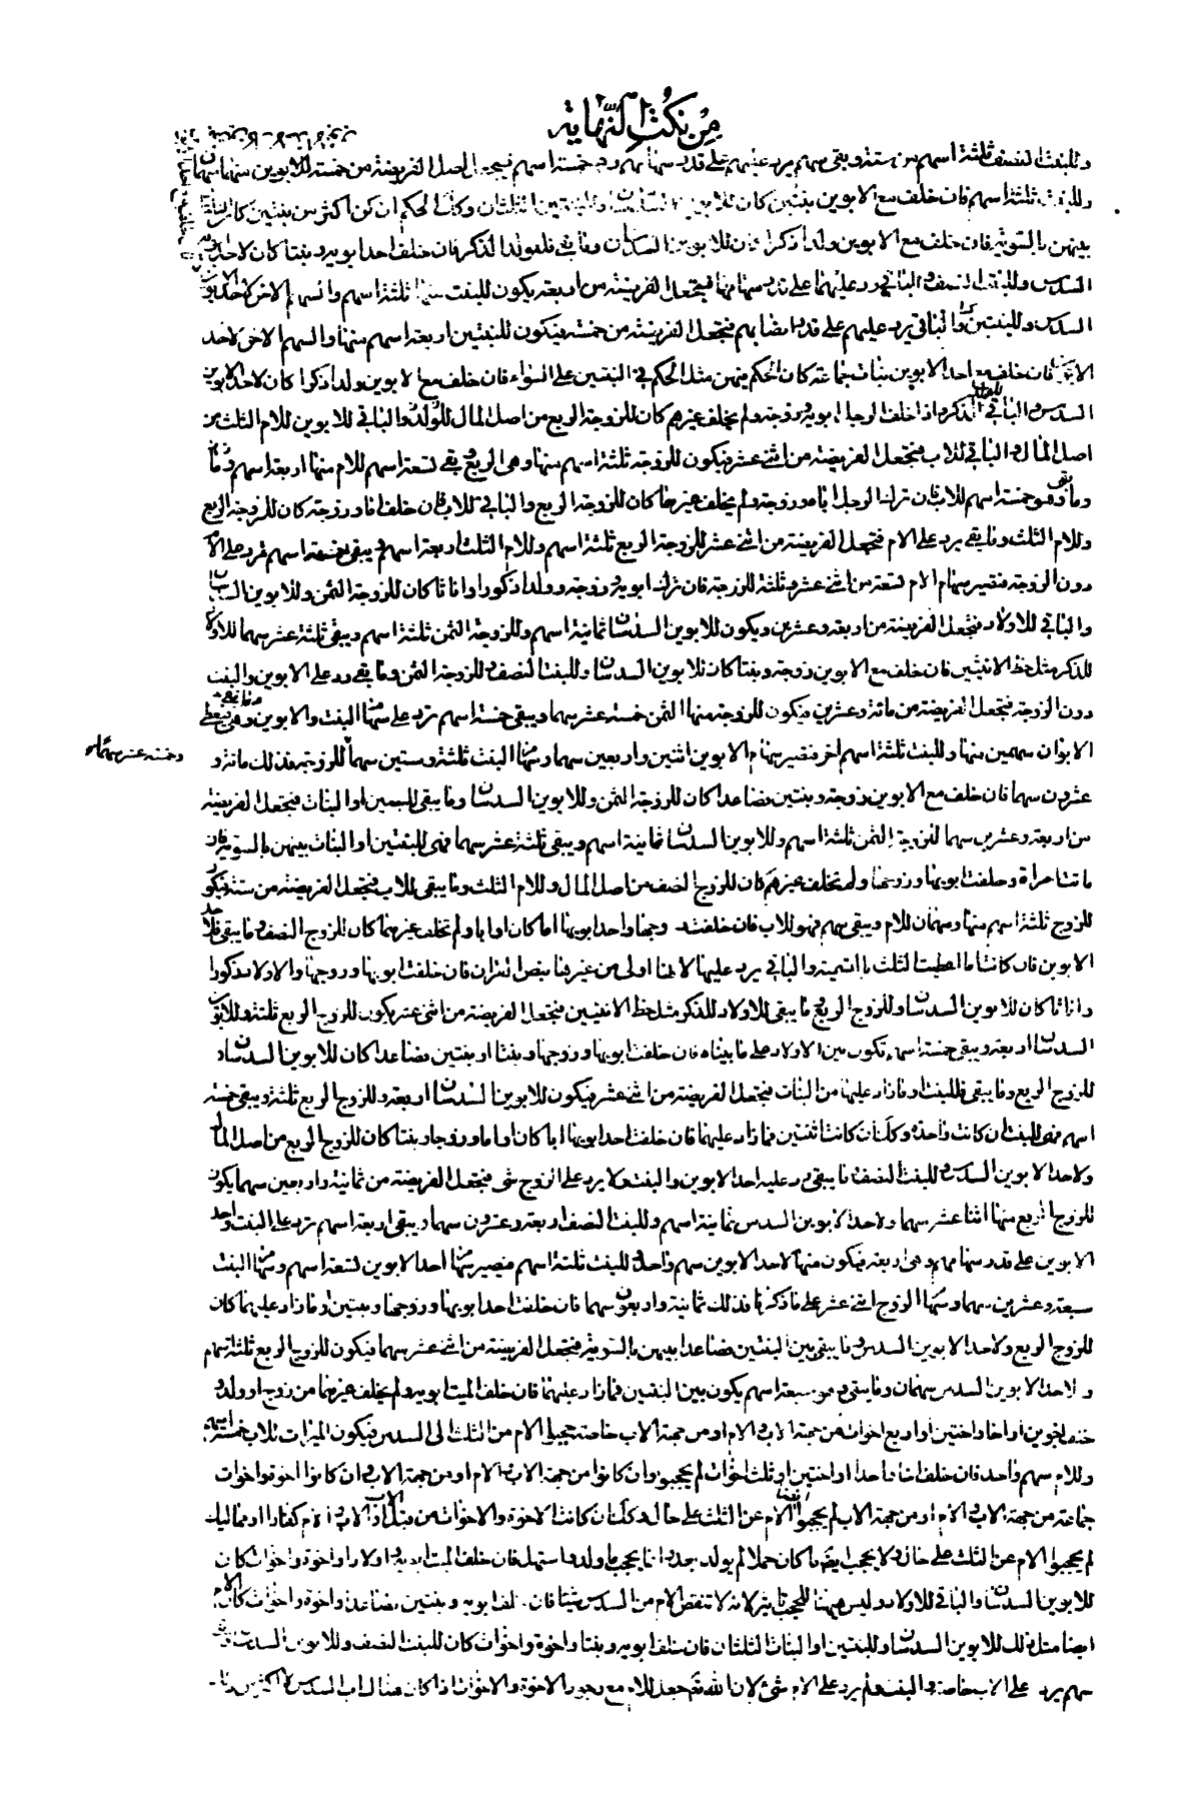 من نكت النهاية
وللبنت النصف ثلثة اسهم من ستة ويبقى سهم يرد عليهم على قدر سهامهم وهي خمسة اسهم فيجعل اصل الفريضة من خمسة للابوين سهمان
وللبنت ثلثة اسهم فان خلف مع الابوين بنتين كان للابوين السدسان وللبنتين الثلثان وكك الحكم ان كن اكثر من بنتين كان الثلثان
بينهن بالسوية فان خلف مع الابوين ولدا ذكرا كان للابوين السدسان وما بقى فللولد الذكر فان خلف احد ابويه وبنتا كان لاحد ابويه
السدس وللبنت النصف والباقي رد عليهما على قدر سهامهما فيجعل الفريضة من اربعة يكون للبنت منها ثلثة اسهم والسهم الاخر لاحد الابوين
السدس وللبنتين والباقي يرد عليهم على قدر انصبائهم فتجعل الفريضة من خمسة فيكون للبنتين اربعة اسهم منها والسهم الاخر لاحد
الابوين فان خلف مع احد الابوين بنات جماعة كان الحكم فيهن مثل الحكم في البنتين على السواء فان خلف مع الابوين ولدا ذكرا كان لاحد الابوين
السدس والباقي للولد الذكر واذا خلف الرجل ابويه وزوجة ولم يخلف غيرهم كان للزوجة الربع من اصل المال والباقي للابوين للام الثلث من
اصل المال والباقي للاب فتجعل الفريضة من اثنى عشر فيكون للزوجة ثلثة اسهم منها وهي الربع ويبقى تسعة اسهم للام منها اربعة اسهم
وما بقى وهو خمسة اسهم للاب فان ترك الرجل اباه وزوجة ولم يخلف غيرهما كان للزوجة الربع والباقي للاب فان خلف اما وزوجة كان للزوجة الربع
وللام الثلث وما يبقى يرد على الام فتجعل الفريضة من اثنى عشر للزوجة الربع ثلثة اسهم وللام الثلث اربعة اسهم ويبقى خمسة اسهم ترد على الام
دون الزوجة فتصير سهام الام تسعة من اثنى عشر وثلثة للزوجة فان ترك ابويه وزوجة وولدا ذكورا واناثا كان للزوجة الثمن وللابوين السدسان
والباقي للاولاد فتجعل الفريضة من اربعة وعشرين ويكون للابوين السدسان ثمانية اسهم وللزوجة الثمن ثلثة اسهم ويبقى ثلثة عشر سهما للاولاد
للذكر مثل حظ الانثيين فان خلف مع الابوين زوجة وبنتا كان للابوين السدسان وللبنت النصف وللزوجة الثمن وما يبقى رد على الابوين والبنت
دون الزوجة فتجعل الفريضة من مائة وعشرين فيكون للزوجة منها الثمن خمسة عشر سهما ويبقى خمسة اسهم ترد على سهام البنت والابوين
الابوان سهمين منها وللبنت ثلثة اسهم اخر فتصير سهام الابوين اثنتين واربعين سهما وسهام البنت ثلثة وستين سهما للزوجة فذلك مائة و
وخمسة عشر سهما
عشرون سهما فان خلف مع الابوين زوجة وبنتين فصاعدا كان للزوجة الثمن وللابوين السدسان وما يبقى للبنتين او البنات فتجعل الفريضة
من اربعة وعشرين سهما للزوجة الثمن ثلثة اسهم وللابوين السدسان ثمانية اسهم ويبقى ثلثة عشر سهما فهي للبنتين او البنات بينهن بالسوية فان
ماتت امراة وخلفت ابويها وزوجها ولم تخلف غيرهم كان للزوج النصف من اصل المال وللام الثلث وما يبقى للاب فتجعل الفريضة من ستة فيكون
للزوج ثلثة اسهم منها وسهمان للام ويبقى سهم فهو للاب فان خلفت زوجها واحد ابويها اما كان او ابا ولم تخلف غيرهما كان للزوج النصف وما يبقى فلاحد
الابوين فان كانت اما اعطيت الثلث بالتسمية والباقي يرد عليها لانها اولى من غيرها بنص القران فان خلفت ابويها وزوجها والاولاد ذكورا
واناثا كان للابوين السدسان وللزوج الربع وما يبقى للاولاد للذكر مثل حظ الانثيين فتجعل الفريضة من اثنى عشر يكون للزوج الربع ثلثة وللابوين
السدسان اربعة ويبقى خمسة اسهم تكون بين الاولاد على ما بيناه فان خلفت ابويها وزوجها وبنتا او بنتين فصاعدا كان للابوين السدسان و
للزوج الربع وما يبقى فللبنت وما زاد عليها من البنات فتجعل الفريضة من اثنى عشر فيكون للابوين السدسان اربعة وللزوج الربع ثلثة ويبقى خمسة
اسهم فهي للبنت ان كانت واحدة وكك ان كانت اثنتين فما زاد عليهما فان خلفت احد ابويها ابا كان او اما وزوجا وبنتا كان للزوج الربع من اصل المال
ولاحد الابوين السدس وللبنت النصف وما يبقى رد عليه احد الابوين والبنت ولا يرد على الزوج شى فتجعل الفريضة من ثمانية واربعين سهما يكون
للزوج الربع منها اثنا عشر سهما ولاحد الابوين السدس ثمانية اسهم وللبنت النصف اربعة وعشرون سهما ويبقى اربعة اسهم ترد على البنت واحد
الابوين على قدر سهامهم وهي اربعة فيكون منها لاحد الابوين سهم واحد وللبنت ثلثة اسهم فيصير سهام احد الابوين تسعة اسهم وسهام البنت
سبعة وعشرين سهما وسهام الزوج اثنى عشر على ما ذكرنا فذلك ثمانية واربعون سهما فان خلفت احد ابويها وزوجها وبنتين وما زاد عليهما كان
للزوج الربع ولاحد الابوين السدس وما يبقى بين البنتين فصاعدا بينهن بالسوية فتجعل الفريضة من اثنى عشر سهما فيكون للزوج الربع ثلثة سهام
ولاحد الابوين السدس سهمان وما يبقى وهو سبعة اسهم يكون بين البنتين فما زاد عليهما فان خلف الميت ابويه ولم يخلف غيرهما من زوج او ولد و
خلف اخوين او اخا واختين او اربع اخوات من جهة الاب والام او من جهة الاب خاصة حجبوا الام من الثلث الى السدس فيكون الميراث للاب خمسة اسهم
وللام سهم واحد فان خلف اخا واحدا او اختين او ثلث اخوات لم يحجبوا وان كانوا من جهة الاب والام او من جهة الاب وان كانوا اخوة واخوات
جماعة من جهة الاب والام او من جهة الاب لم يحجبوا الام عن الثلث على حال وكك ان كانت الاخوة والاخوات من قبل الاب او الاب والام كفارا او مماليك
لم يحجبوا الام عن الثلث على حال ولا يحجب ايضا ما كان حملا لم يولد بعد وانما يحجب ما ولد واستهل فان خلف الميت ابويه واولادا واخوة واخوات كان
للابوين السدسان والباقي للاولاد وليس ههنا للحجب تاثير لانه لا تنقص الام من السدس شيئا فان خلف ابويه وبنتين فصاعدا واخوة واخوات كان الامر
ايضا مثل ذلك للابوين السدسان وللبنتين او البنات الثلثان فان خلف ابويه وبنتا واخوة واخوات كان للبنت النصف وللابوين السدسان
سهم يرد على الاب خاصة والبنت ولم يرد على الام شئ لان الله تعالى جعل للام مع وجود الاخوة والاخوات اذا كان هناك اب السدس